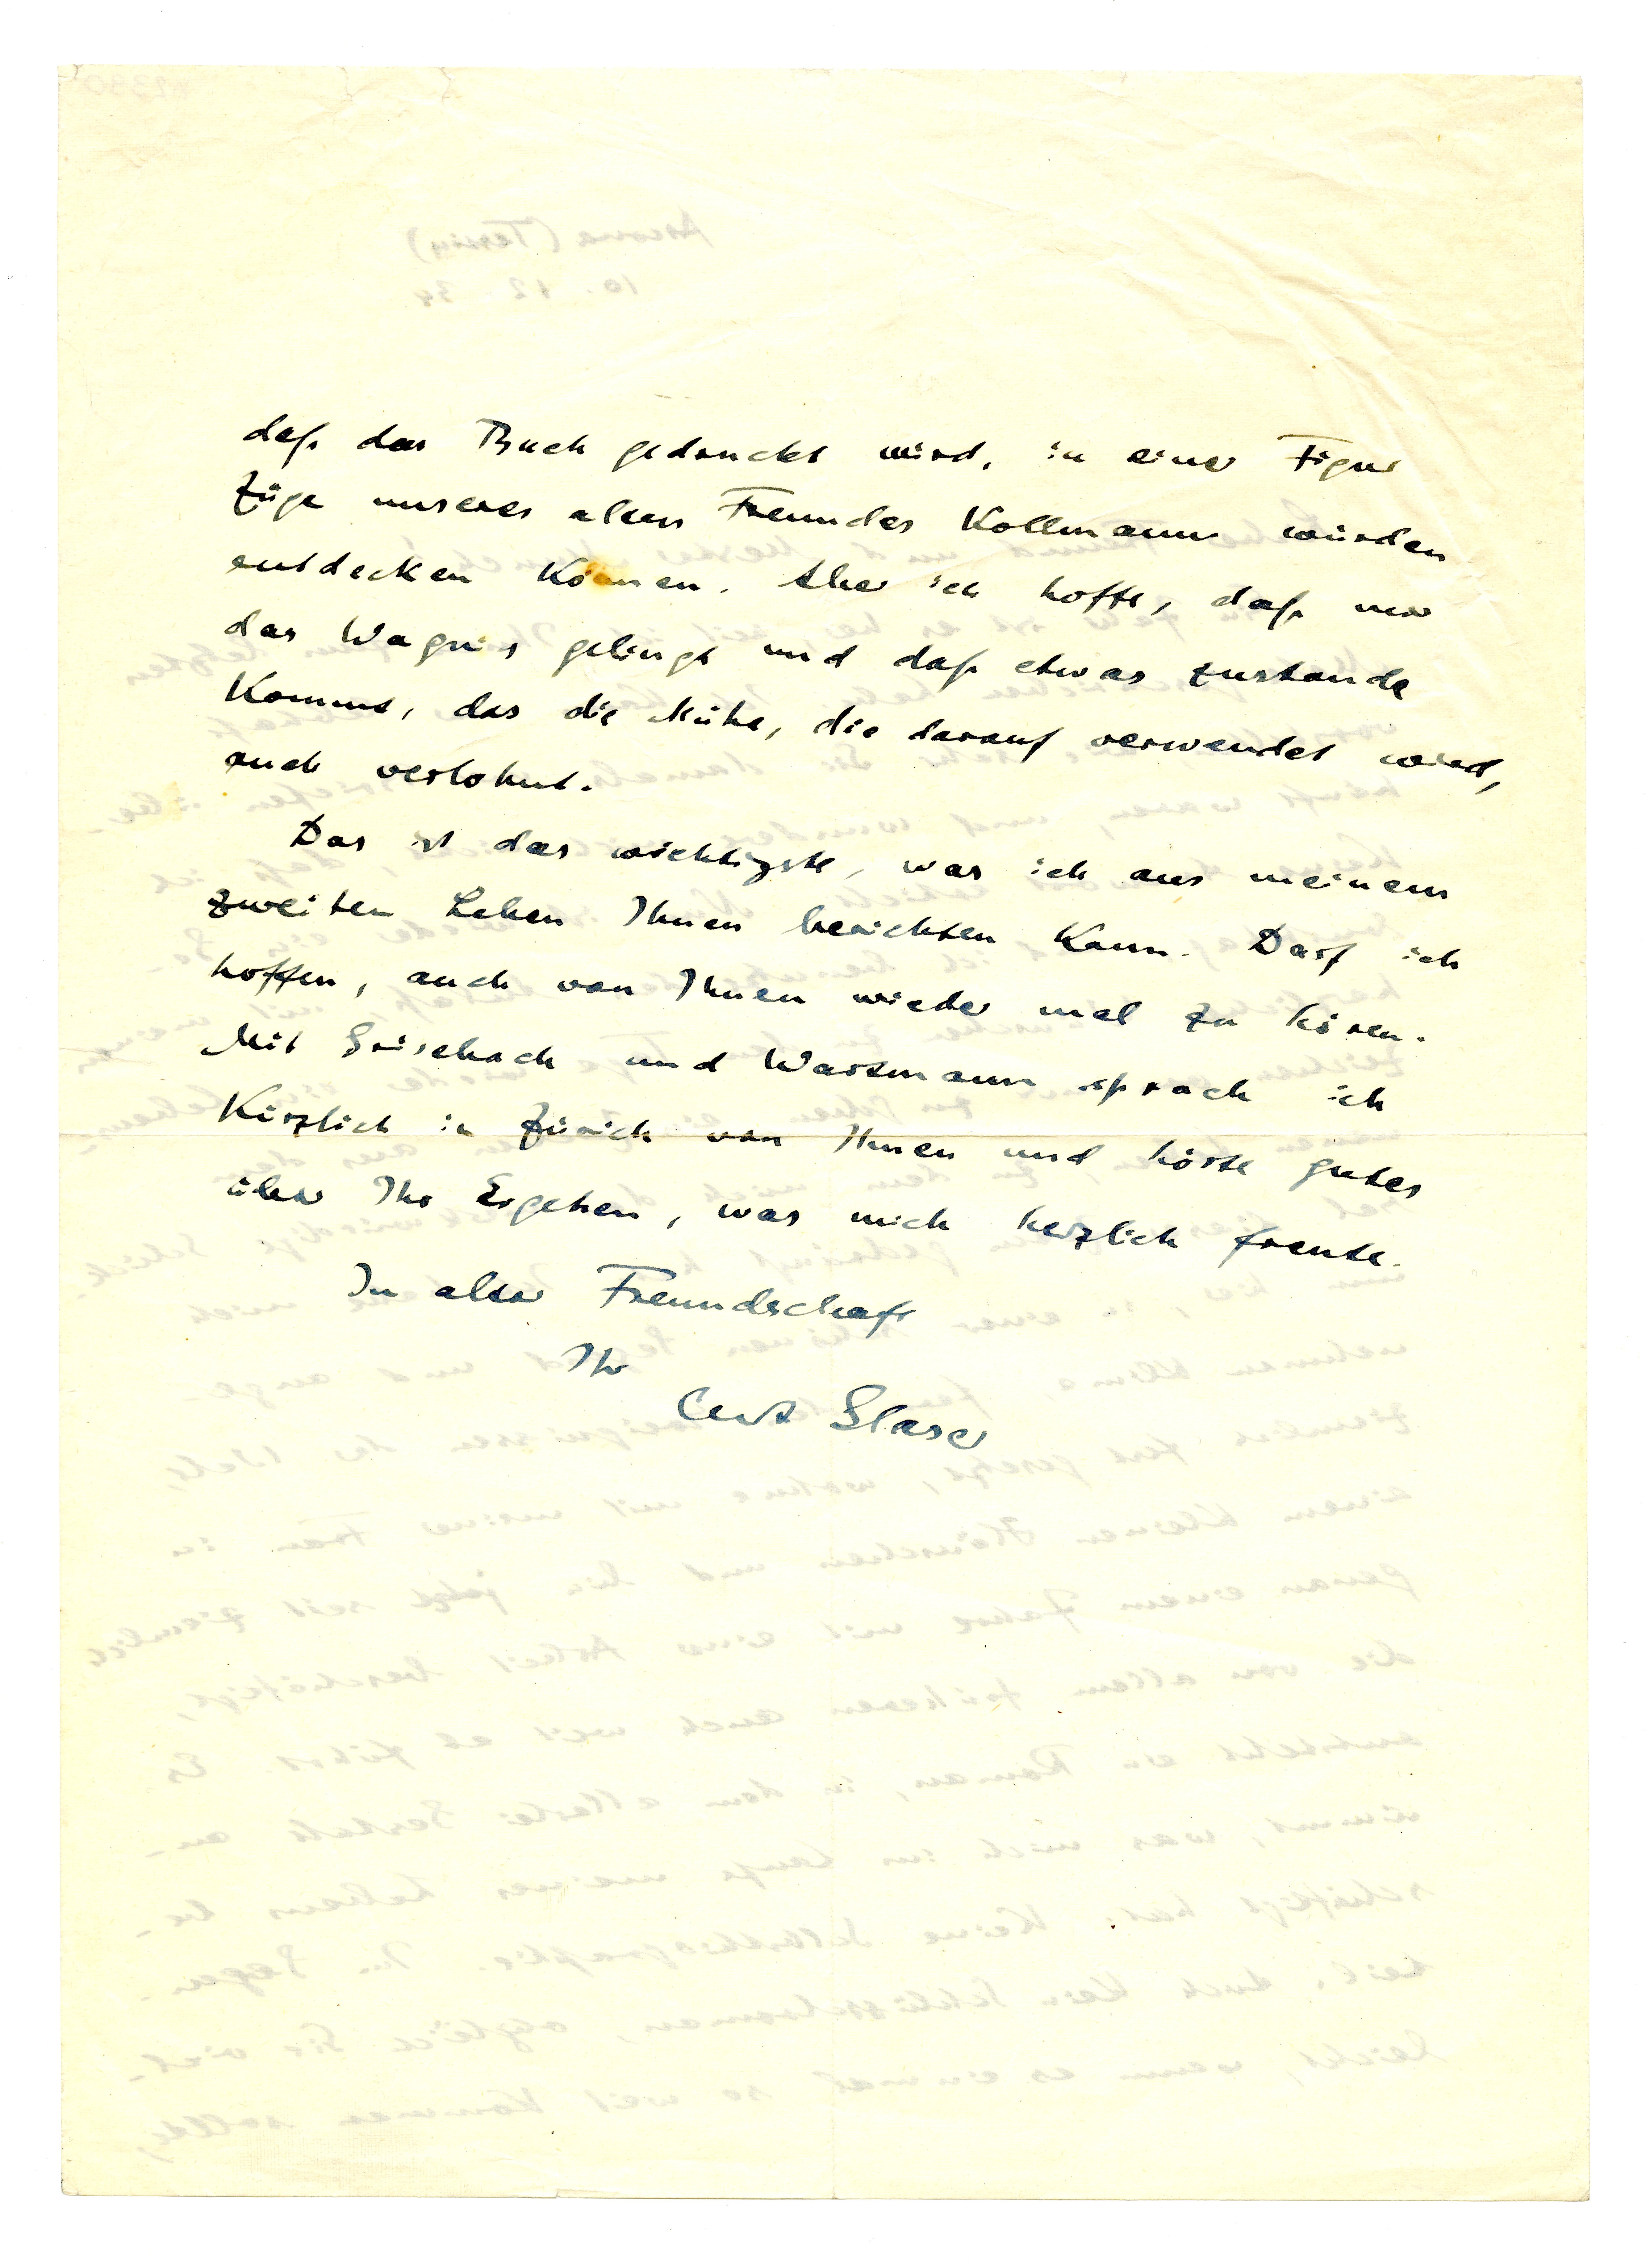 daß das Buch gedruckt wird, in einer Figur
Züge unseres alten Freundes Kollmann würden
entdecken können. Aber ich hoffe, daß mir
das Wagnis gelingt und daß etwas zustande
kommt, das die Mühe, die darauf verwendet wird,
auch verlohnt.
Das ist das wichtigste, was ich aus meinem
zweiten Leben Ihnen berichten kann. Darf ich
hoffen, auch von Ihnen wieder mal zu hören.
Mit Grisebach und Wartmann sprach ich
kürzlich in Zürich von Ihnen und hörte gutes
über Ihr Ergehen, was mich herzlich freute.
In alter Freundschaft
Ihr
Curt Glaser